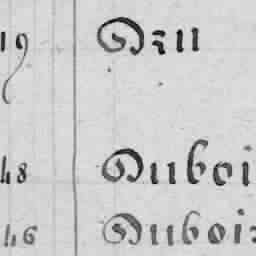 19 Dzu
48 Duboi
46 Duboi